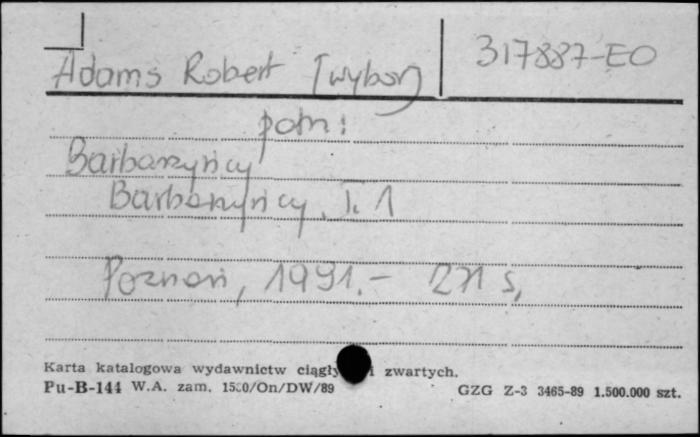 Adams Robert [wybór] 317887-EO
patrz:
Barbarzyńcy
Barbarzyńcy. T. 1
Poznań, 1991.- 271 s.
Karta katalogowa wydawnictw zwartych.
Pu-B-144 W.A. zam. /On/DW/89 GZG Z-3 3465-89 1.500.000 szt.